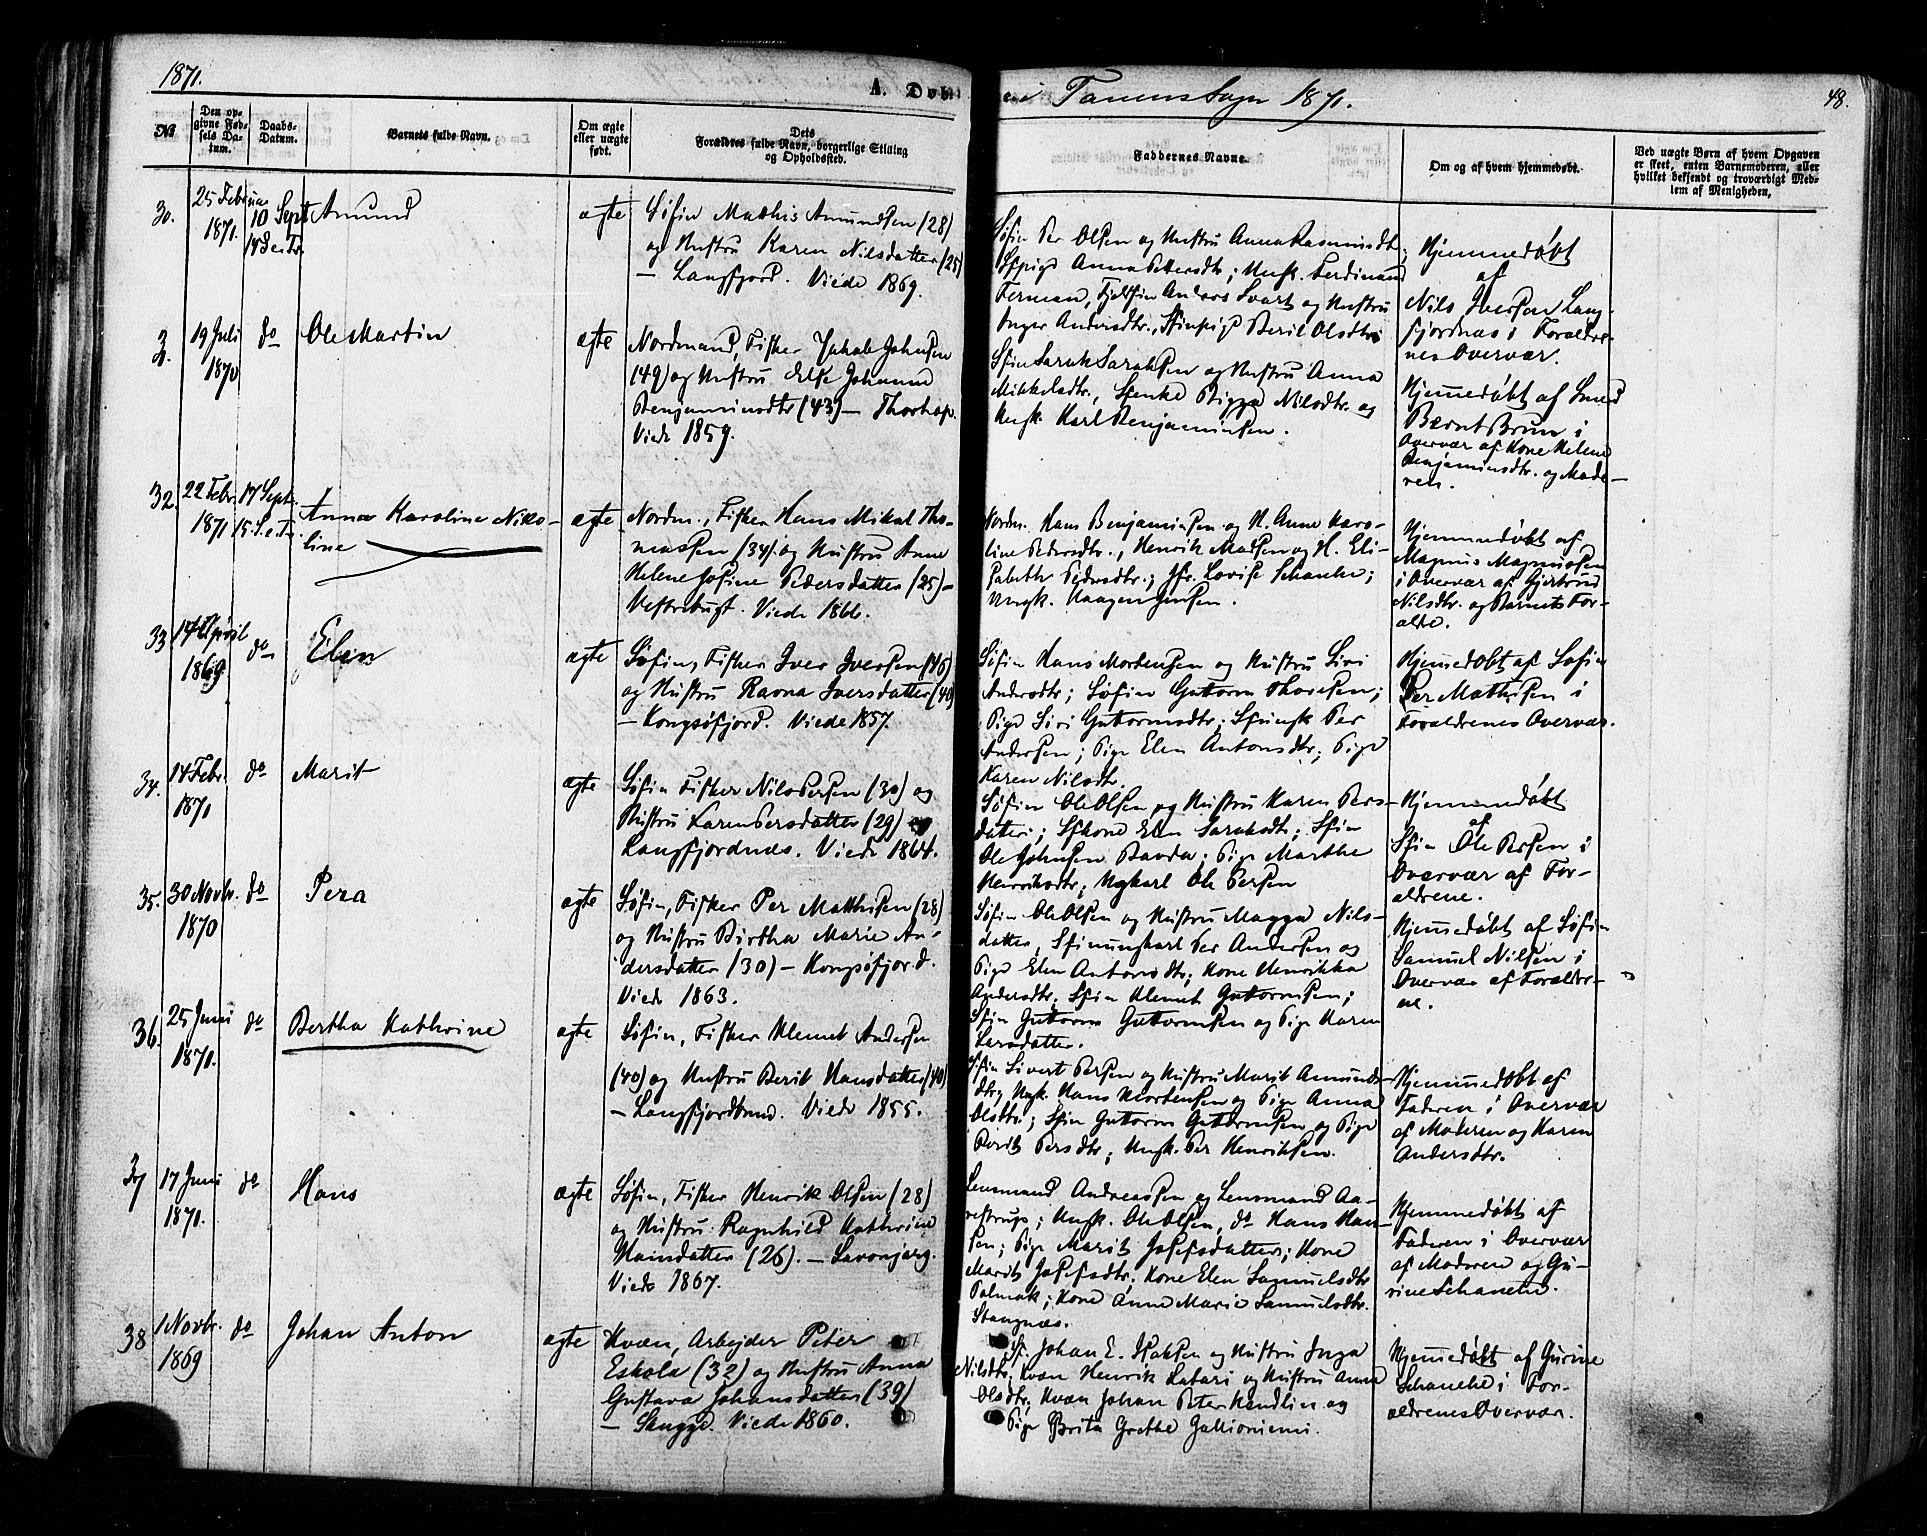 1871.
A. Døb
i Tanens Sogn 1871.
48.
No
Den op-
givne Fød-
sels Da-
tum.
Daabs-
Datum.
Barnets fulde Navn.
Om ægte
eller uægte
født.
Dets
Forældres fulde Navn, borgerlige Stilling
og Opholdssted.
Faddernes Navne.
Om og af hvem hjemmedøbt.
Ved uægte Børn af hvem Opgaven
er skeet, enten Barnemoderen, eller
hvilket bekjendt og troværdigt Med-
lem af Menigheden,
30.
25 Februar
1871.
10 Sept
14 de e Tr.
Amund
ægte
Søfin Mathis Amundsen (28)
og Hustru Karen Nilsdatter (25)
— Langfjord. Viede 1869.
Søfin Per Olsen og Hustru Anna Rasmusdtr;
Sfpige Anna Pettersdtr; Ungk. Ferdinand
Ferman, Fjelfin Anders Svart og Hustru
Inger Andersdtr., Sfinpige Beril Olsdtr
Hjemmedøbt
af
Nils Iversen Lang-
fjordnæs i Forældre-
nes Overvær.
31.
19 Juli
1870
do
Ole Martin
ægte
Nordmand, Fisker Jakob Johnsen
(49) og Hustru Else Johanne
Benjaminsdtr (43) — Thorhop.
Viede 1859.
Sfin Sarak Saraksen og Hustru Anna
Mikkelsdtr, Sfenke Bigga Nilsdtr. og
Ungk. Karl Benjaminsen.
Hjemmedøbt af Smed
Bernt Brun i
Overvær af Kone Helene
Benjaminsdtr. og Mode-
ren.
32.
22 Febr.
1871
17 Sept.
15 S. e. Tr.
Anna Karoline Niko-
line
ægte
Nordm., Fisker Hans Mikal Tho-
massen (34) og Hustru Anne
Helene Josine Pedersdatter (25) —
Vestrebugt. Viede 1866.
Nordm. Hans Benjaminsen og H. Anne Karo-
line Pedersdtr., Henrik Madsen og H. Eli-
sabeth Pedersdtr.; Jfr. Lovise Schanche;
Ungk. Haagen Jensen.
Hjemmedøbt af
Magnus Magnussen
i Overvær af Gjertrud
Nilsdtr. og Barnets For-
ældre.
33
14 April
1869
do
Elen
ægte
Søfin, Fisker Iver Iversen (46)
og Hustru Ravna Iversdatter (40)
— Kongsøfjord. Viede 1857.
Søfin Hans Mortensen og Hustru Siri
Andersdtr; Søfin Guttorm Thoresen;
Pige Siri Guttormsdtr; Sfungk Per
Andersen; Pige Elen Antonsdtr; Pige
Karen Nilsdtr.
Hjemmedøbt af Søfin
Per Mathisen i
Forældrenes Overvær.
34.
14 Febr.
1871
do
Marit
ægte
Søfin Fisker Nils Persen (30) og
Hustru Karen Persdatter (29)
Langfjordnæs. Viede 1864.
Søfin Ole Olsen og Hustru Karen Pers-
datter; Sfkone Elen Saraksdtr; Sfin
Ole Johnsen Bavda; Pige Marthe
Henriksdtr; Ungkarl Ole Persen
Hjemmedøbt
af
Sfin Ole Persen i
Overvær af For-
ældrene.
35.
30 Novbr.
1870
do
Pera
ægte
Søfin, Fisker Per Matthisen (28)
og Hustru Birtha Marie An-
dersdatter (30) — Kongsøfjord.
Viede 1863.
Søfin Ole Olsen og Hustru Magga Nils-
datter, Sfinungkarl Per Andersen og
Pige Elen Antonsdtr; Kone Henrikka
Andersdtr; Sfin Klemet Guttormsen;
Sfin Guttorm Guttormsen og Pige Karen
Larsdatter.
Hjemmedøbt af Søfin
Samuel Nilsen i
Overvær af Forældre-
ne.
36.
25 Juni
1871.
do
Bertha Kathrine
ægte
Søfin, Fisker Klemet Andersen
(40) og Hustru Berit Hansdatter (40)
— Langfjordbund. Viede 1855.
Sfin Sivert Persen og Hustru Marit Amunds-
dtr; Ungk. Hans Mortensen og Pige Anna
Olsdtr; Sfin Guttorm Guttormsen og Pige
Berit Persdtr; Ungk. Per Henriksen.
Hjemmedøbt af
Faderen i Overvær
af Moderen og Karen
Andersdtr.
37
17 Juni
1871.
do
Hans
ægte
Søfin, Fisker Henrik Olsen (28)
og Hustru Ragnhild Kathrine
Hansdatter (26). — Lavonjarg.
Viede 1867.
Lensmand Andreassen og Lensmand Aa-
restrup; Ungk. Ole Olsen, do Hans Han-
sen; Pige Marit Josefsdatter; Kone
Marit Josefsdtr; Kone Elen Samuelsdtr
Polmak; Kone Anne Marie Samuelsdtr.
Stangnæs.
Hjemmedøbt af
Faderen i Overvær
af Moderen og Gu-
rine Schanche.
38
1 Novbr.
1869
do
Johan Anton
ægte
Kvæn, Arbejder Peter
Eskola (32) og Hustru Anna
Gustava Johansdatter (39)
— Skugge. Viede 1860.
Sf. Johan E. Isaksen og Hustru Inga
Nilsdtr; Kvæn Henrik Latari og Hustru Anna
Olsdtr; Kvæn Johan Peter Kandlin og
Pige Brita Grethe Gallioniemi.
Hjemmedøbt af Gurine
Schanche i For-
ældrenes Overvær.